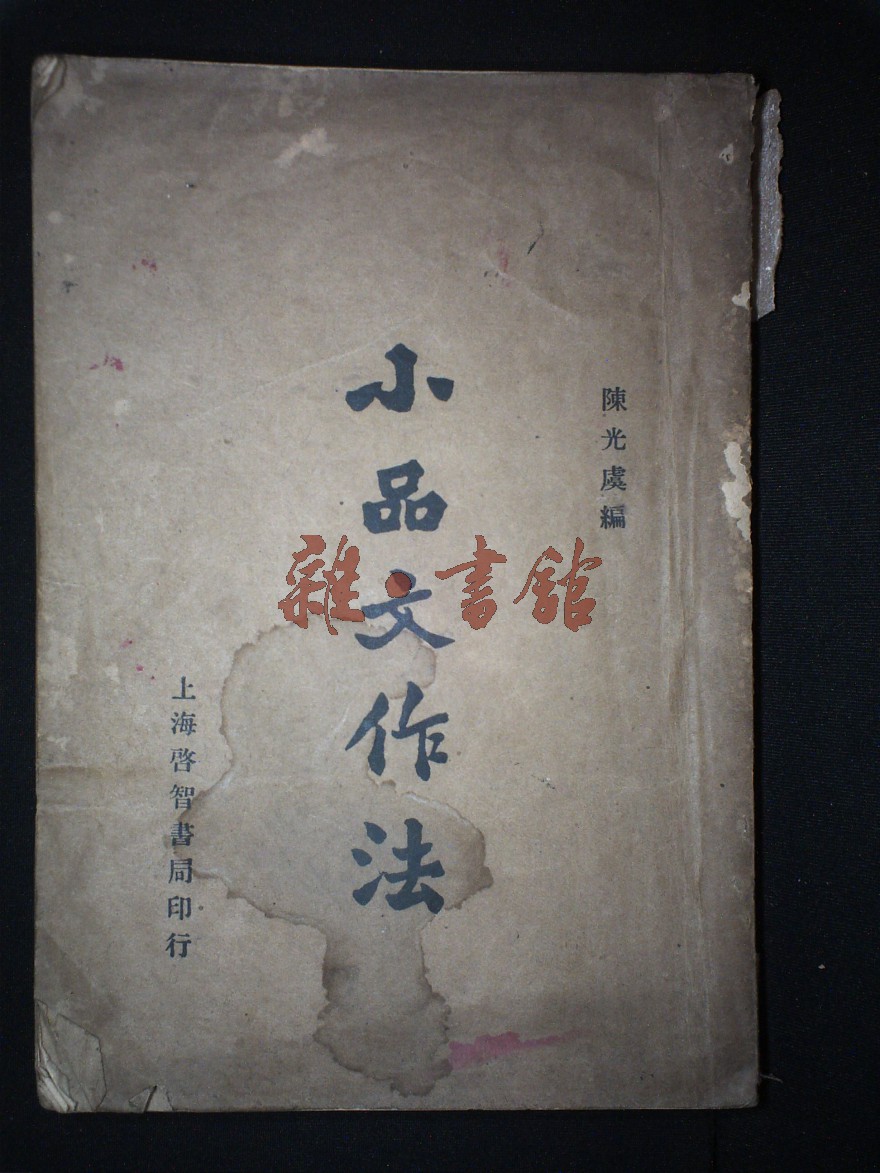 陳光虞編
小品文作法
上海啓智書局印行
雜·書館